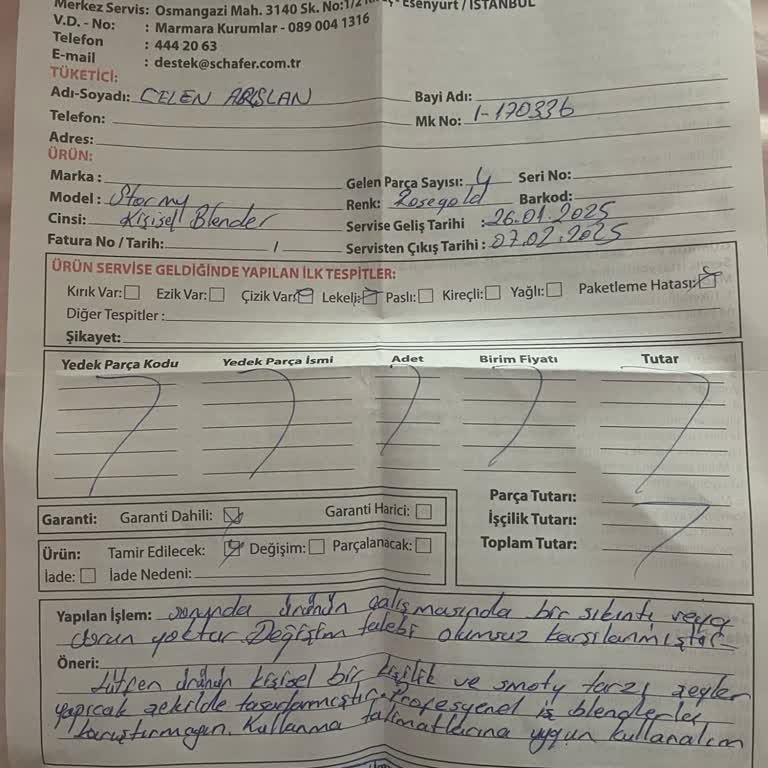 Merkez Servis: Osmangazi Mah. 3140 Sk. No:1/2 Esenyurt / İSTANBUL
V.D. - No: : Marmara Kurumlar - 089 004 1316
Telefon : 444 20 63
E-mail : destek@schafer.com.tr
TÜKETİCİ:
Adı-Soyadı: CELEN ARSLAN Bayi Adı:
Telefon: Mk No: 1-170336
Adres:
ÜRÜN:
Marka : Gelen Parça Sayısı: 4 Seri No:
Model: Stormy Renk: Rosegold Barkod:
Cinsi: Kişisel Blender Servise Geliş Tarihi : 26.01.2025
Fatura No / Tarih: / Servisten Çıkış Tarihi : 07.02.2025
ÜRÜN SERVİSE GELDİĞİNDE YAPILAN İLK TESPİTLER:
Kırık Var: Ezik Var: Çizik Var: Lekeli: Paslı: Kireçli: Yağlı: Paketleme Hatası:
Diğer Tespitler :
Şikayet:
Yedek Parça Kodu Yedek Parça İsmi Adet Birim Fiyatı Tutar
Parça Tutarı:
Garanti: Garanti Dahili: Garanti Harici:
İşçilik Tutarı:
Toplam Tutar:
Ürün: Tamir Edilecek: Değişim: Parçalanacak:
İade: İade Nedeni:
Yapılan İşlem: ürünün çalışmasında bir sıkıntı veya
sorun yoktur. Değişim talebi olumsuz karşılanmıştır.
Öneri:
Lütfen ürünün kişisel bir kişilik ve smoty tarzı şeyler
yapıcak şekilde tasarlanmıştır. Profesyenel iş blenderler
karıştırmayın. Kullanma talimatlarına uygun kullanalım